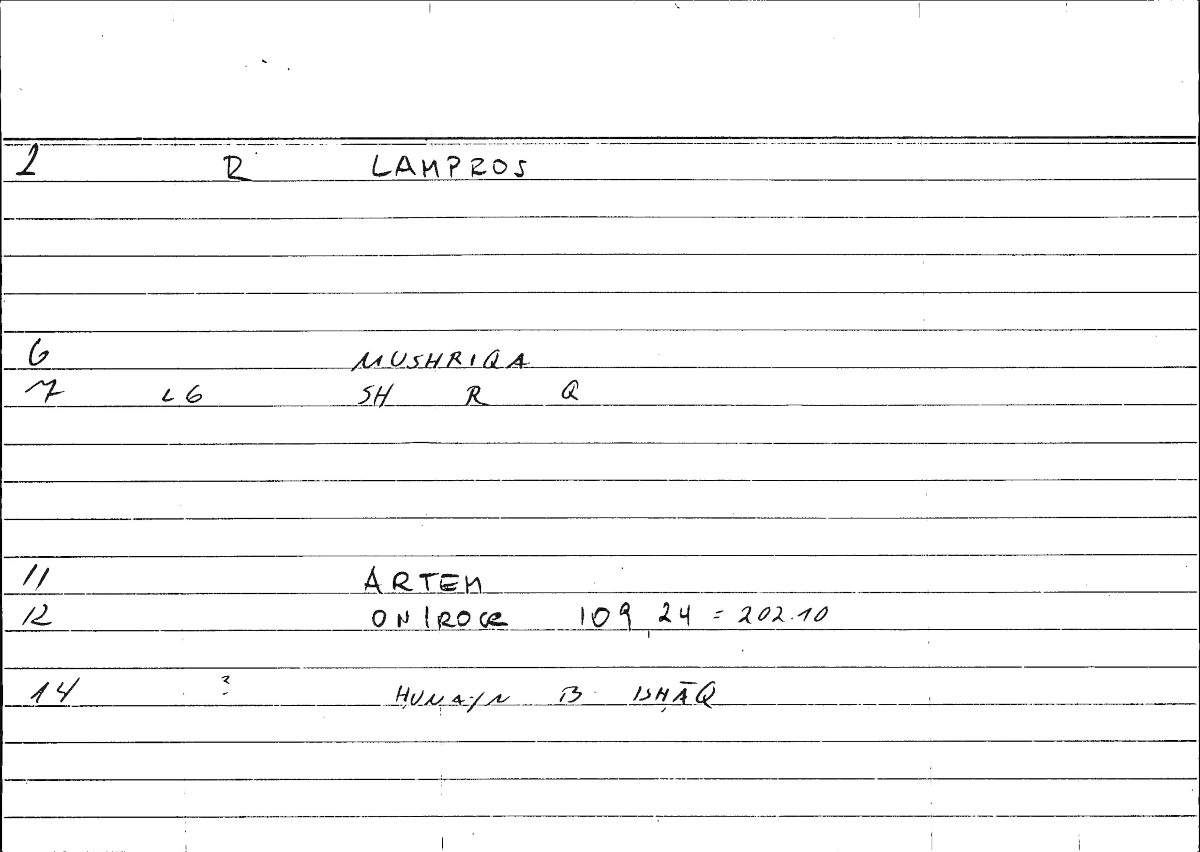 1 R LAMPROS
6 MUSHRIQA
7 L6 SH R Q
11 ARTEM
12 ONIROCR 109,24 = 202.10
14 ? ḤUNAYN B ISḤĀQ